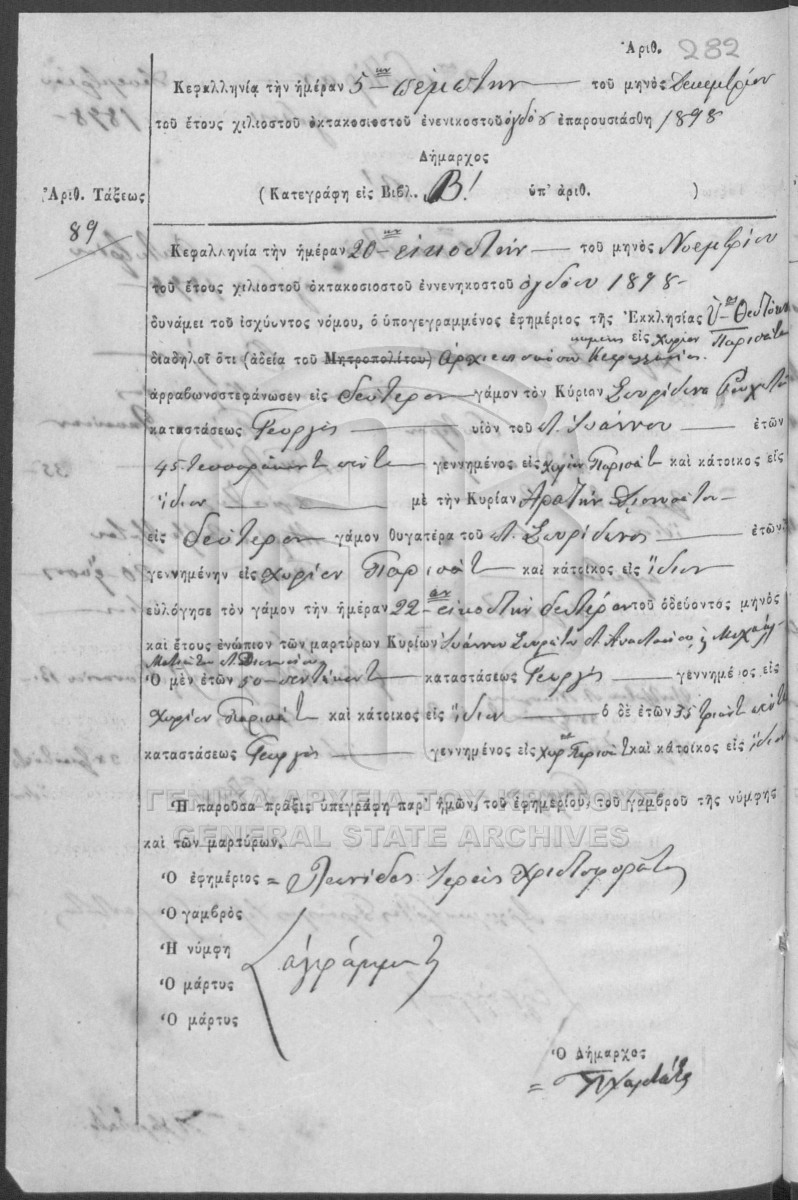 Ἀριθ. 282
Κεφαλληνίᾳ τὴν ἡμέραν 5ην πέμπτην τοῦ μηνὸς Δεκεμβρίου
τοῦ ἔτους χιλιοστοῦ ὀκτακοσιοστοῦ ἐνενικοστοῦ ὀγδόου ἐπαρουσιάσθη 1898
Δήμαρχος
Ἀριθ. Τάξεως (Κατεγράφη εἰς Βιβλ. Β! ὑπ' ἀριθ. )
89
Κεφαλληνία τὴν ἡμέραν 20ην εἰκοστὴν τοῦ μηνὸς Νοεμβρίου
τοῦ ἔτους χιλιοστοῦ ὀκτακοσιοστοῦ ἐννενηκοστοῦ ὀγδόου 1898
δυνάμει τοῦ ἰσχύωντος νόμου, ὁ ὑπογεγραμμένος ἐφημέριος τῆς Ἐκκλησίας Ὑ. Θεοτόκου
εἰς χωρίον Παρισάτα
διαδηλοῖ ὅτι (ἀδεία τοῦ Μητροπολίτου) Ἀρχιεπισκόπου Κεφαλληνίας
ἀρραβωνοστεφάνωσεν εἰς δεύτερον γάμον τὸν Κύριον Σπυρίδωνα
καταστάσεως Γεωργὸς υἱὸν τοῦ Π. Ἰωάννου ἐτῶν
45 τεσσαράκοντ πέντε γεννημένος εἰς χωρίον Παρισάτ καὶ κάτοικος εἰς
ἴδιον μὲ τὴν Κυρίαν Διονυσάτου
εἰς δεύτερον γάμον θυγατέρα τοῦ Π. Σπυρίδωνος ἐτῶν
γεννημένην εἰς χωρίον Παρισάτ καὶ κάτοικος εἰς ἴδιον
εὐλόγησε τὸν γάμον τὴν ἡμέραν 22αν εἰκοστὴν δευτέραν τοῦ ὁδεύοντος μηνὸς
καὶ ἔτους ἐνώπιον τῶν μαρτύρων Κυρίων Ἰωάννου Π. Ἀναστασίου, ἢ
Π. Διονυσίου
Ὁ μὲν ἐτῶν 50 πεντήκοντ καταστάσεως Γεωργὸς γεννημένος εἰς
χωρίον Παρισάτ καὶ κάτοικος εἰς ἴδιον ὁ δὲ ἐτῶν 35 τριάντ πέντε
καταστάσεως Γεωργὸς γεννημένος εἰς χωρ Παρισάτ καὶ κάτοικος εἰς ἴδιον
ΓΕΝΙΚΑ ΑΡΧΕΙΑ ΤΟΥ ΚΡΑΤΟΥΣ
Ἡ παροῦσα πράξις ὑπεγράφη παρ' ἡμῶν, τοῦ ἐφημερίου, τοῦ γαμβροῦ τῆς νύμφης
GENERAL STATE ARCHIVES
καὶ τῶν μαρτύρων.
Ὁ ἐφημέριος = Λεωνίδας Ἱερεὺς Χριστοφοράτος
Ὁ γαμβρὸς
Ἡ νύμφη
ἀγράμματ
Ὁ μάρτυς
Ὁ μάρτυς
Ὁ Δήμαρχος